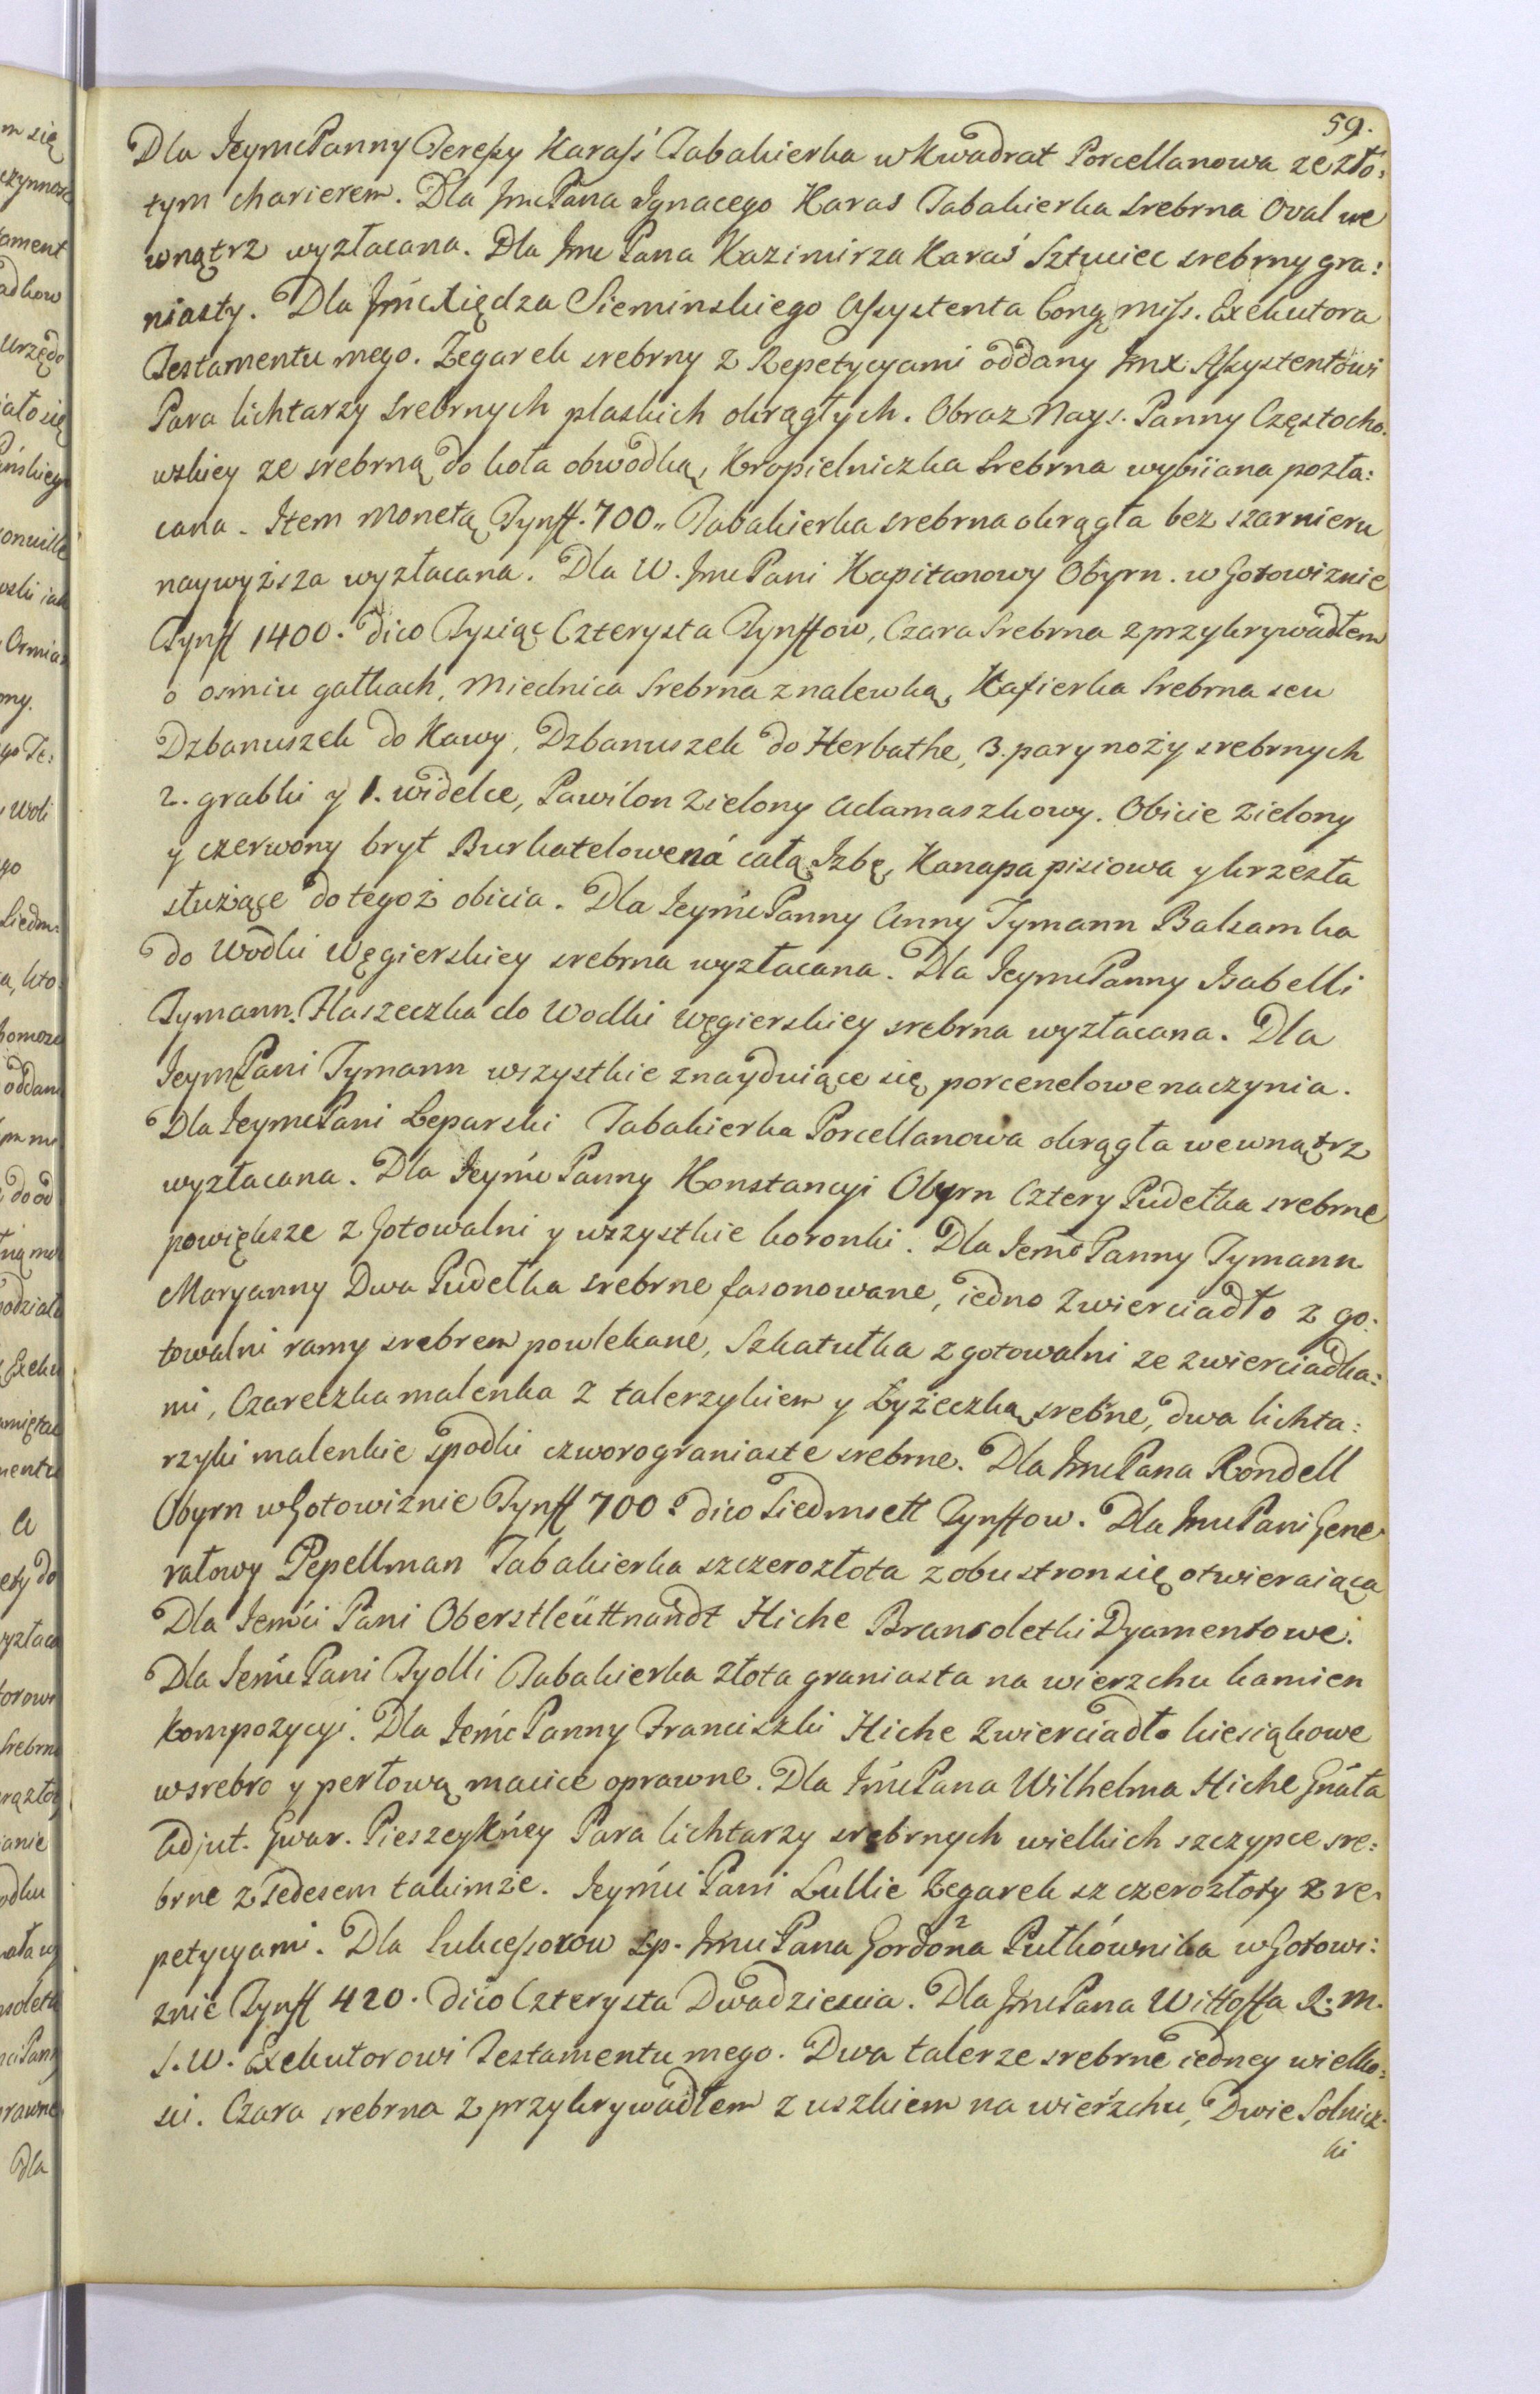 59.
Dla JeymcPanny Tereſsy Karaſś Tabakierka w Kwadrat Porcellanowa ze zło:
tym charierem. Dla JmcPana Jgnacego Karas Tabakierka srebrna Oval we
wnątrz wyzłacana. Dla Jmc Pana Kazimirza Karaś Sztuciec srebrny gra:
niasty. Dla Jmć Xiędza Sieminskiego Aſsystenta Cong. Miſs. Exekutora
Testamentu mego. Zegarek srebrny z Repetycyami oddany Jmx Aſsystentowi
Para lichtarzy srebrnych płaskich okrągłych. Obraz Nays. Panny Częstocho.
wskiey ze srebrną do koła obwodką, Kropielniczka srebrna wybiiana pozła:
cana. Item Monetą Tynff. 700,, Tabakierka srebrna okrągła bez szarnieru
naywyższa wyzłacana. Dla W. Jmc Pani Kapitanowy Obyrn. w Gotowiznie
Tynff 1400. dico Tysiąc Czterysta Tynffow, Czara Srebrna z przykrywadłem
o osmiu gałkach, Miednica Srebrna z nalewką, Kafierka Srebrna seu
Dzbanuszek do Kawy, Dzbanuszek do Herbathe, 3. pary noży srebrnych
2. grabki y 1. widelce, Pawilon Zielony Adamaszkowy. Obicie Zielony
y czerwony bryt Burkatelowe ná całą Jzbę, Kanapa pisiowa y krzesła
służące do tegoż obicia. Dla JeymćPanny Anny Tymann Balsamka
do Wodki Węgierskiey srebrna wyzłacana. Dla JeymcPanny Isabelli
Tymann. Flaszeczka do Wodki węgierskiey srebrna wyzłacana. Dla
JeymcPani Tymann wszystkie znayduiące się porcenelowe naczynia.
Dla JeymcPani Leparski Tabakierka Porcellanowa okrągła wewnątrz
wyzłacana. Dla Jeymć Panny Konstancyi Obyrn Cztery Pudełka srebrne
powiększe z Gotowalni y wszystkie koronki. Dla Jemć Panny Tymann
Maryanny Dwa Pudełka srebrne fasonowane, iedno zwierciadło z go:
towalni ramy srebrem powlekane, Szkatułka z gotowalni ze zwierciadka:
mi, Czareczka malenka z talerzykiem y Łyżeczką srebrne, dwa lichta:
rzyki malenkie spodki czworograniaste srebrne. Dla JmcPana Rondell
Obyrn w Gotowiznie Tynff 700. dico Siedmsett Tynffow. Dla JmcPani Gene
rałowy Pepellman Tabakierka szczerozłota z obu stron się otwieraiąca
Dla Jemći Pani Oberstleüttnandt Hiche Bransoletki Dyamentowe.
Dla Jemć Pani Tydli Tabakierka złota graniasta na wierzchu kamien
Kompozycyi. Dla Jemć Panny Franciszki Hiche Zwierciadło kiesiąkowe
w srebro y perłową macice oprawne. Dla JmćPana Wilhelma Hiche Gnała
Adjut. Gwar. Pieszey Kńey Para lichtarzy srebrnych wielkich szczypce sre:
brne z sedesem takimże. Jeymći Pani Lullie Zegarek szczerozłoty z re
petycyami. Dla Sukceſsorow Sp. Jmc Pana Gordona Pułkównika w Gotowi:
znie Tynff 420. dico Czterysta Dwadziescia. Dla JmcPana Wittoffa R: M.
S. W. Exekutorowi Testamentu mego. Dwa talerze srebrne iedney wielko:
sci. Czara srebrna z przykrywadłem z uszkiem na wierzchu, Dwie Solnicz
ki